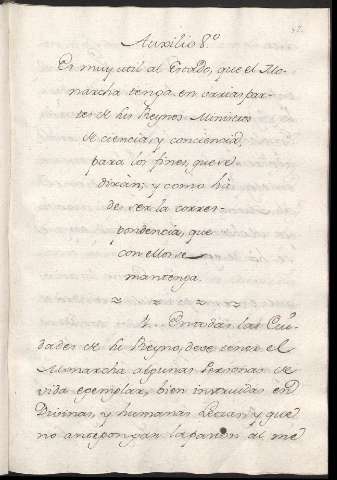 Auxilio 8.º
Es muy util al Estado, que el Mo-
narcha tenga en varias par-
tes de sus Reynos Ministros
de ciencia, y conciencia,
para los fines, que se
diràn; y como hà
de ser la corres-
pondencia, que
con ellos se
mantenga.
En todas las Ciu-
dades de su Reyno, debe tener el
Monarcha algunas Personas de
vida egemplar, bien instruidas en
Divinas, y humanas Letras, y que
no antepongan la pasion al me